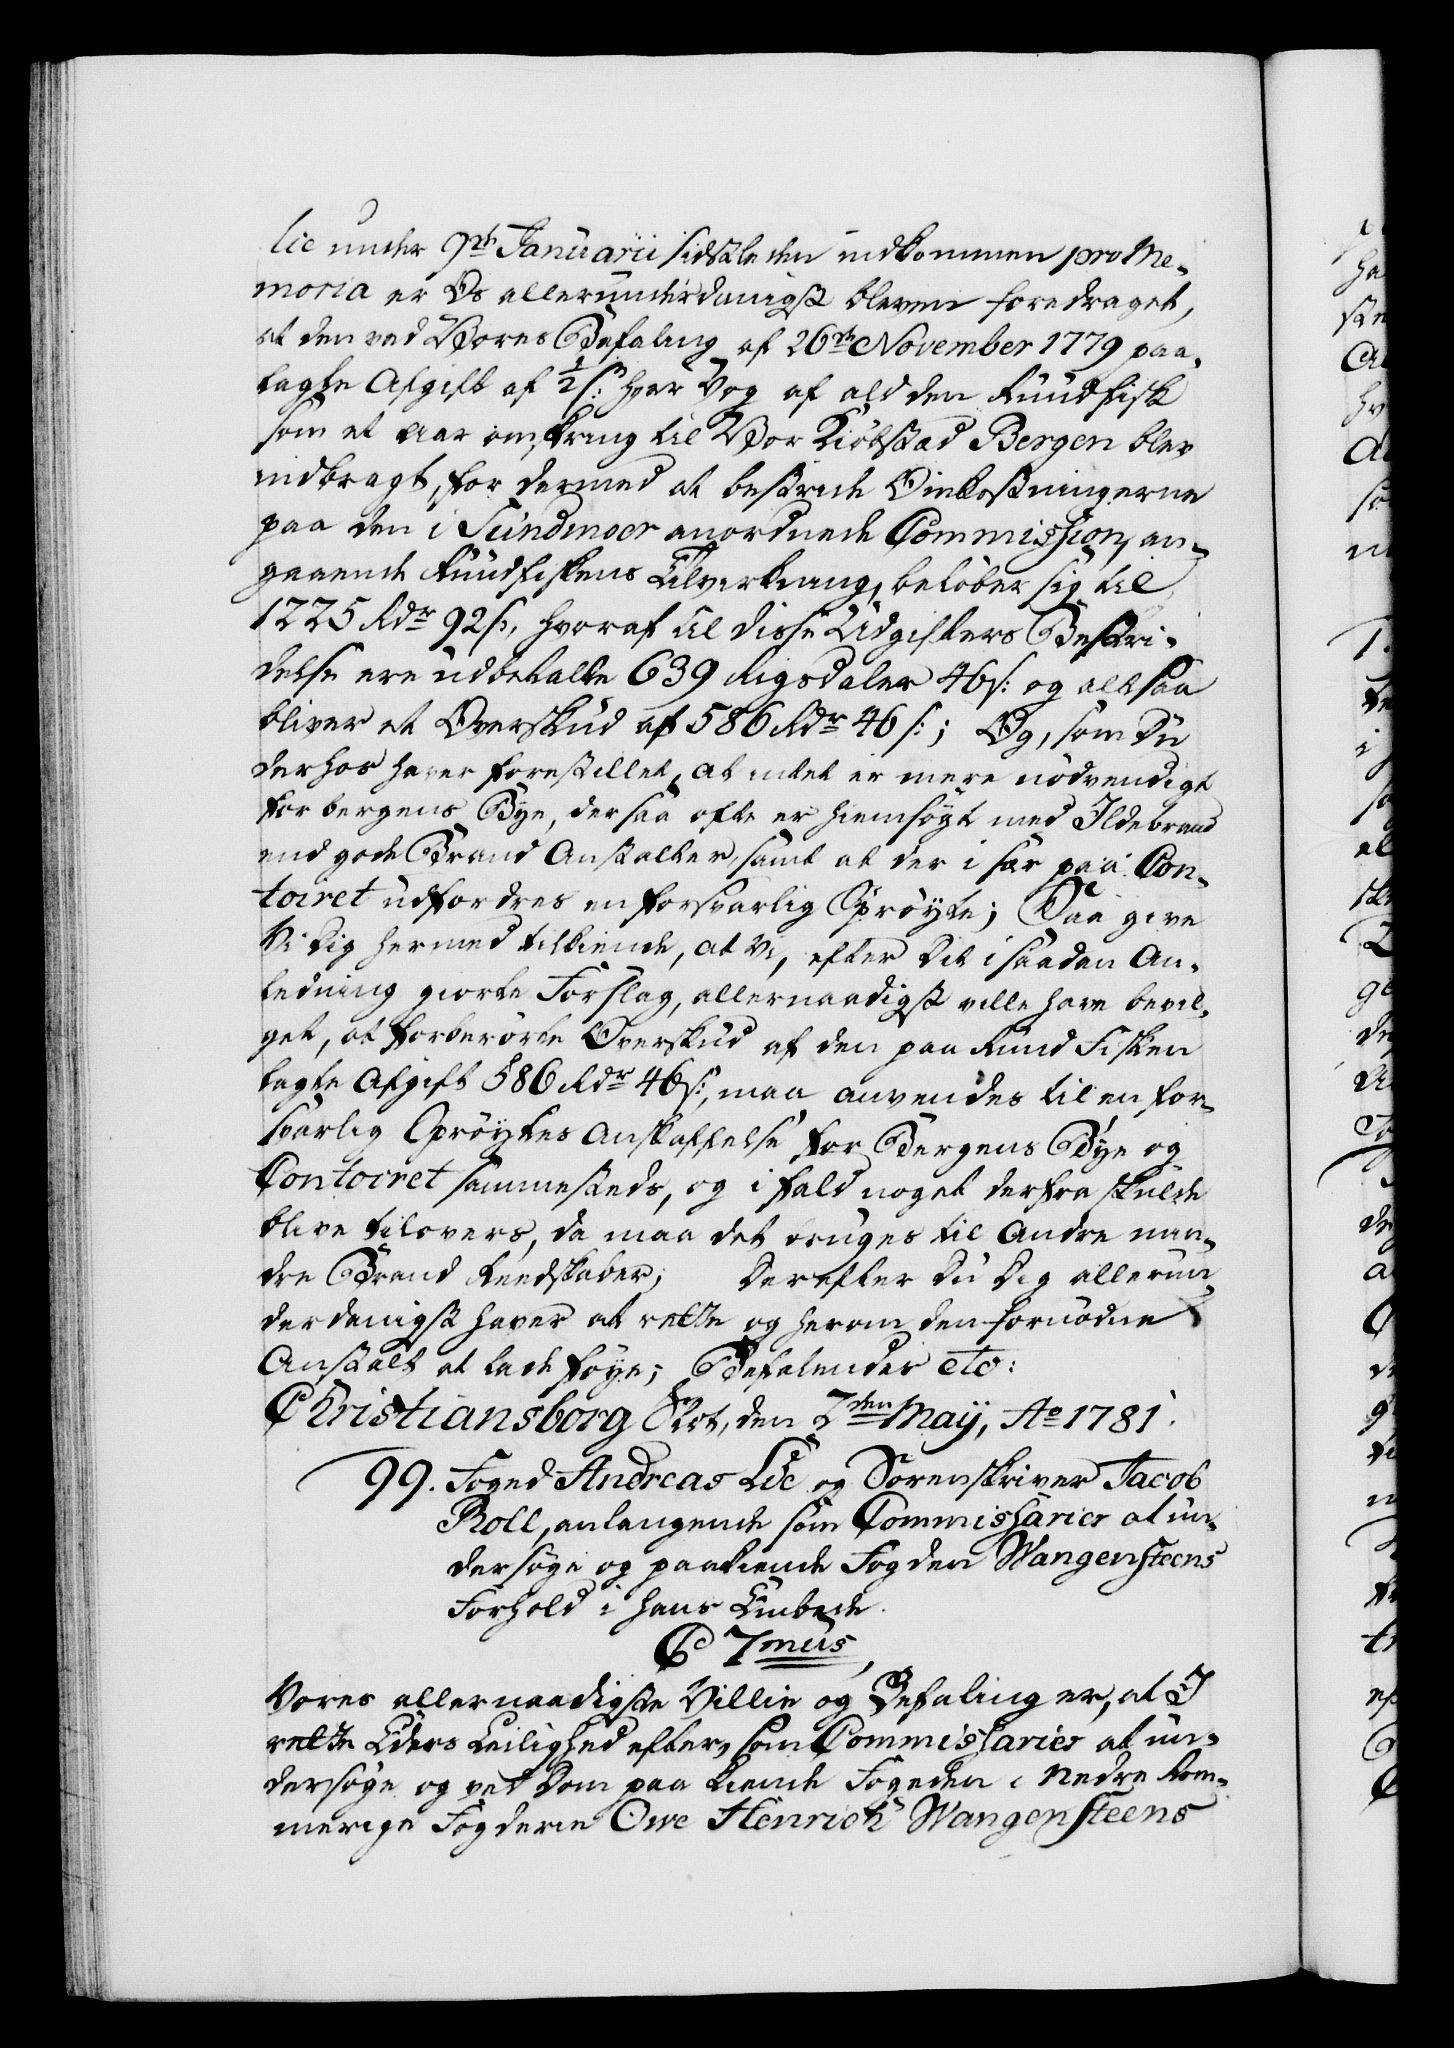 lie under 9de Januarii sidstleden indkommen pro Me-
moria er Os allerunderdanigst bleven foredraget,
at den ved Vores Befaling af 26de November 1779 paa-
lagte Afgift af ½ s: hver Vog af ald den Rundfisk
som et Aar omkring til Vor Kiöbstad Bergen blev
indbragt, for dermed at bestride Omkostningerne
paa den i Sundmoer anordnede Commission, an-
gaaende Rundfiskens Tilvirkning, beløber sig til
1225 Rdr 92 s:, hvoraf til disse Udgifters Bestri-
delse ere udbetalte 639 Rigsdaler 46 s: og altsaa
bliver et Overskud af 586 Rdr 46 s:; Og, som Du
derhos haver forestillet, at intet er mere nödvendigt
for bergens Bye, der saa ofte er hiemsögt med Ildebrand
end gode Brand Anstalter, samt at der i sær paa Con-
toiret udfordres en forsvarlig Spröyte; Saa give
Vi Dig hermed tilkiende, at Vi, efter Dit i saadan An-
ledning giorte Forslag, allernaadigst ville have bevil-
get, at forberörte Overskud af den paa Rund Fisken
lagte Afgift 586 Rdr 46 s:, maa anvendes til en for-
svarlig Spröytes Anskaffelse for Bergens Bye og
Contoiret sammesteds, og i fald noget derfra skulde
blive tilovers, da maa det bruges til Andre min-
dre Brand Reedskaber; Derefter Du Dig allerun-
derdanigst haver at rette og herom den fornödne
Anstalt at lade föye; Befalendes etc:
Christiansborg Slot, den 2den May, Ao 1781.
99. Foged Andreas Lie og Sorenskriver Jacob
Roll, anlangende som Commissarier at un-
dersöge og paakiende Fogden Wangensteens
Forhold i hans Embede.
C 7mus,
Vores allernaadigste Villie og Befaling er, at I
rette Eders Leilighed efter, som Commissarier at un-
dersöge og ved Dom paa kiende Fogeden i Nedre Rom-
merige Fogderie Owe Henrich Wangensteens